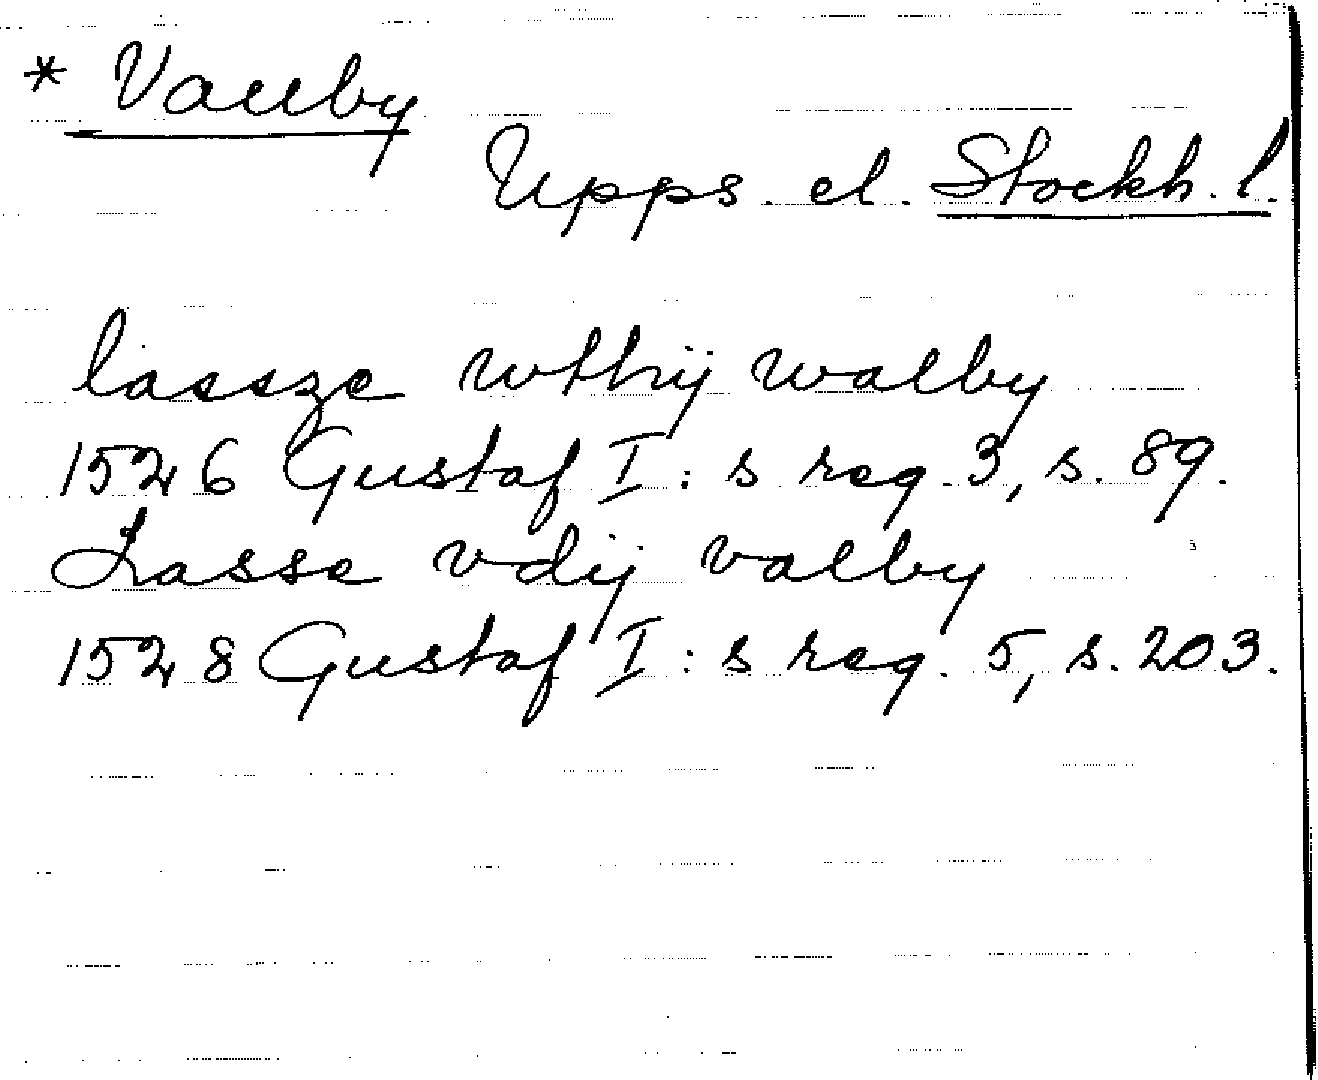 * Vallby
Upps. el. Stockh. l.
lassze wthij walby
1526 Gustaf I:s reg. 3, s. 89.
Lasse vdij valby
1528 Gustaf I:s reg. 5, s. 203.